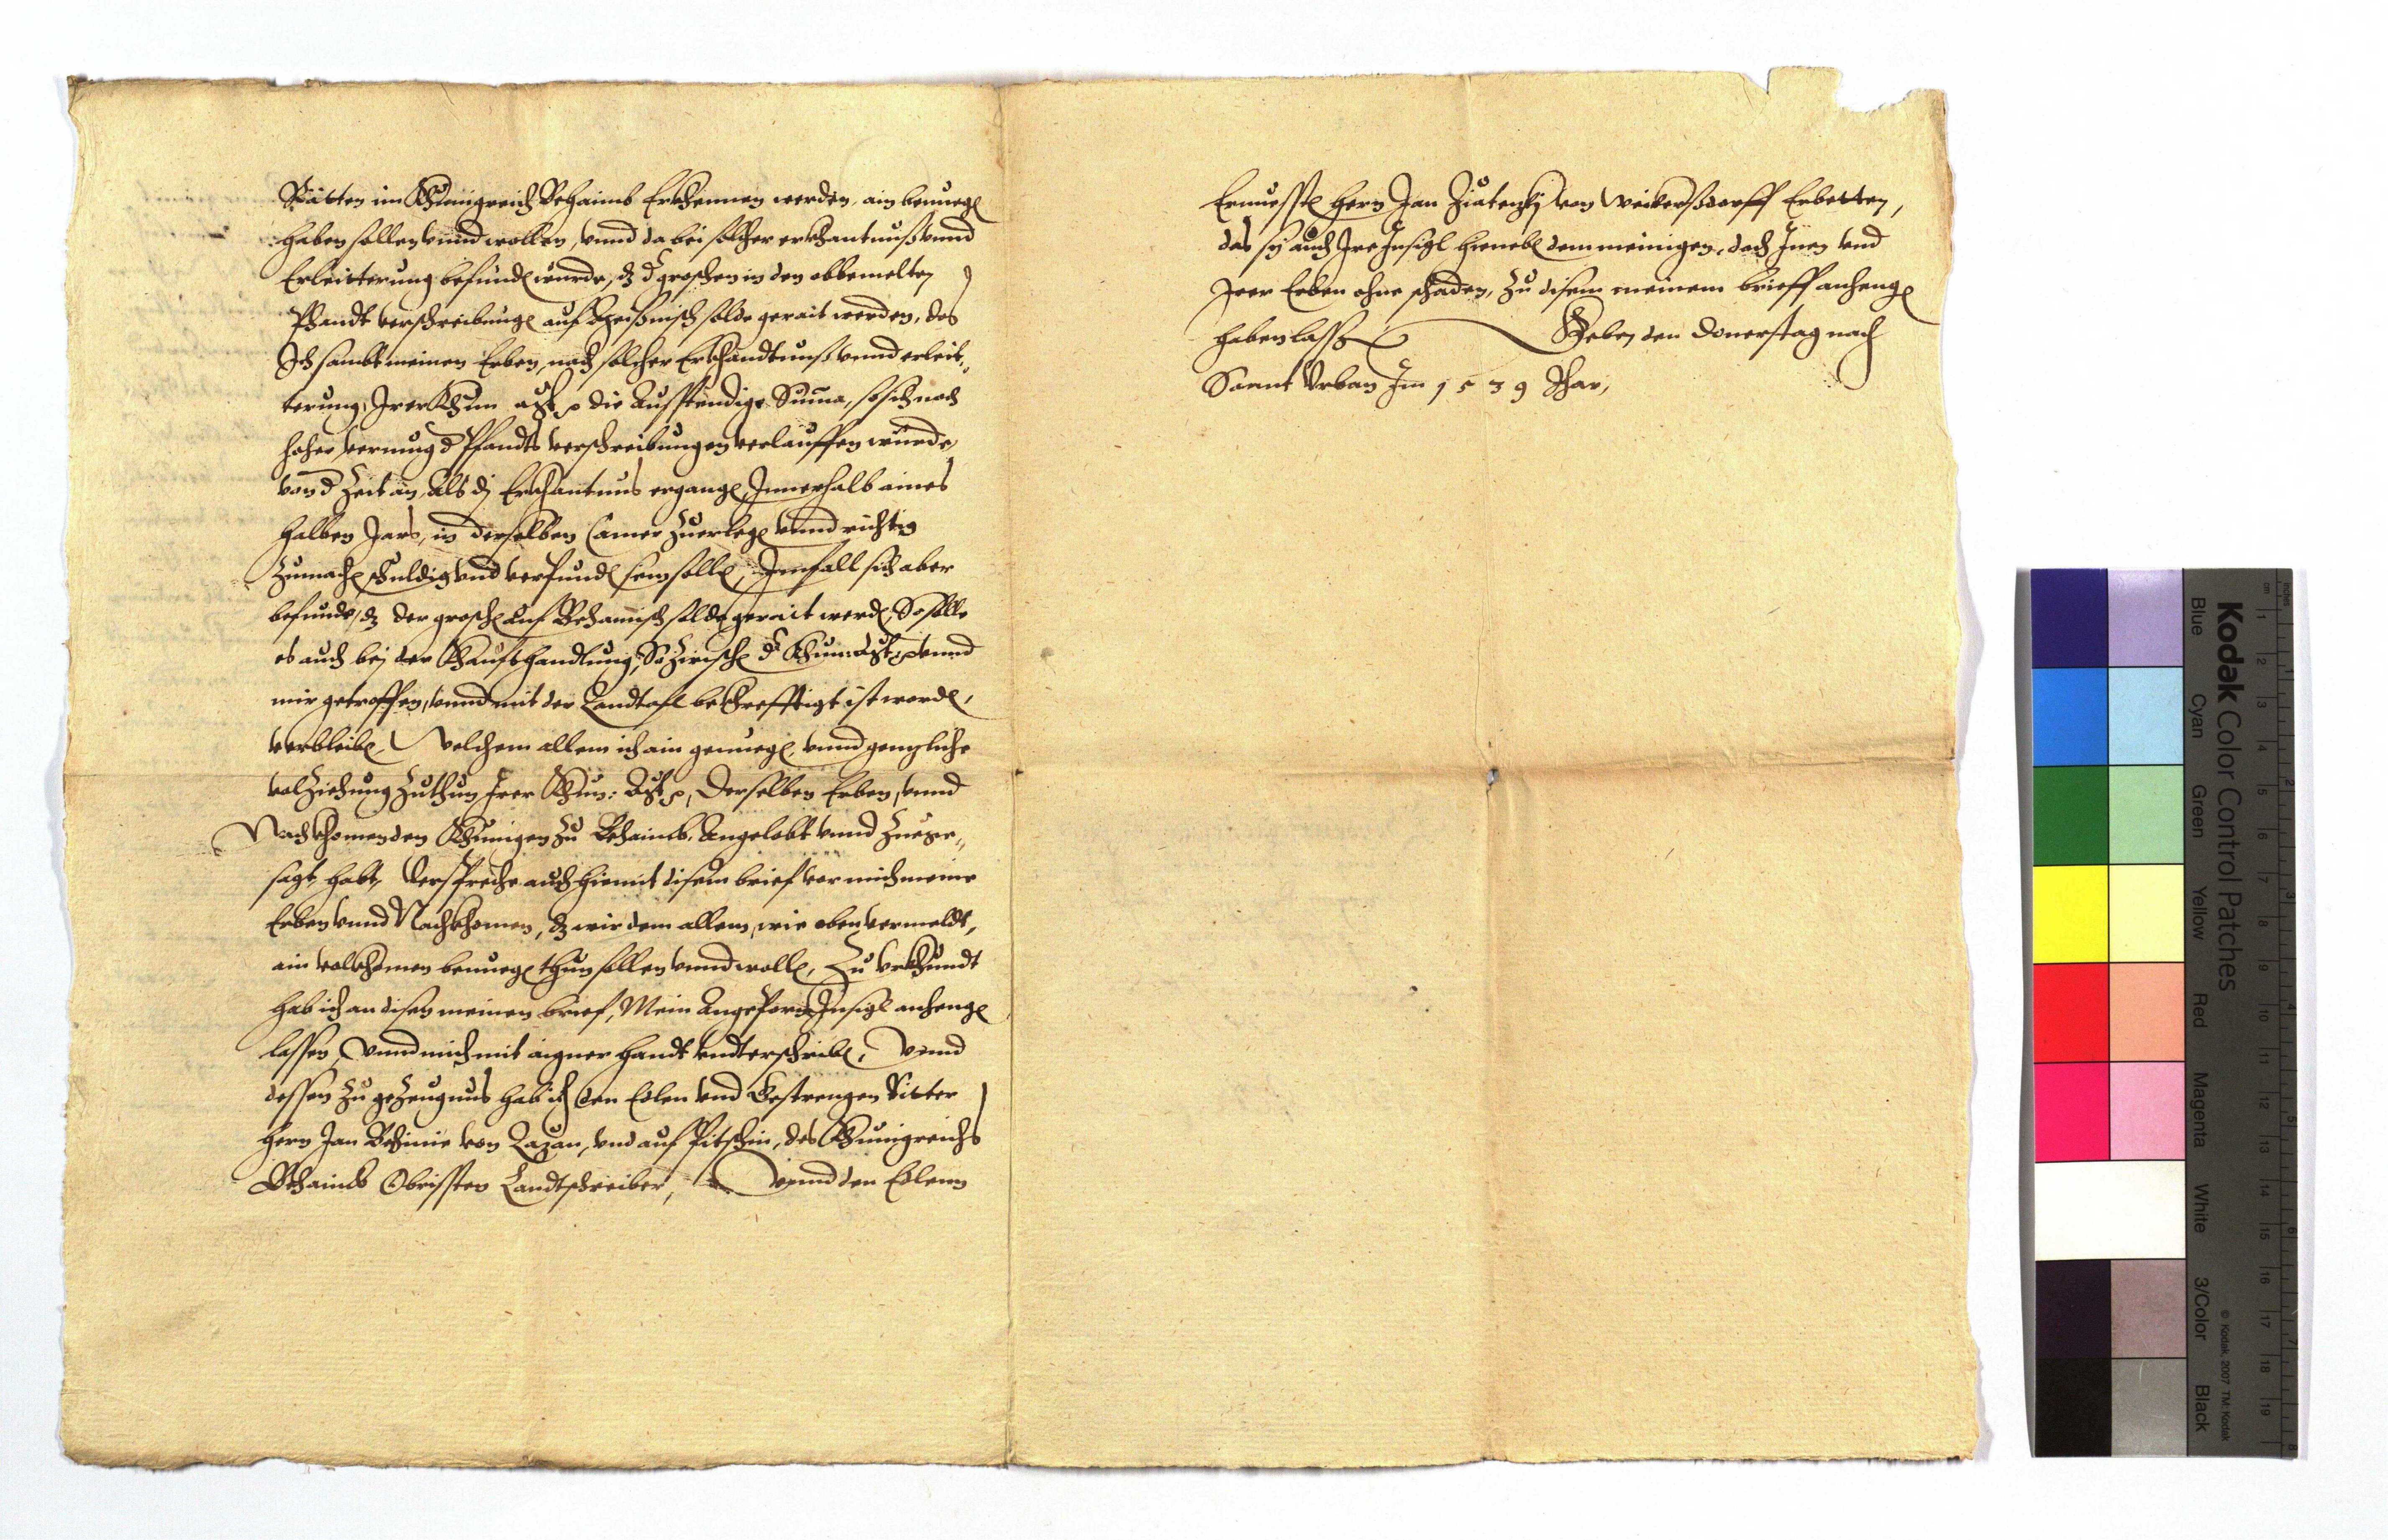 Rätten im Khünigreich Behaimb Erkhennen werden, ain benueg
haben sollen vnnd wollen, vnnd da bei solcher erkhantnuß vnnd
Erleitterung befunden wurde, dz d groschen in den obbemelten
Phandt verschreibungen auf Meißnisch solde gerait werden, das
Ich sambt meinen Erben, nach solcher Erkhandtnuß vnnd erleit„
terung, Irer Khun: Mst: die Ausstendige Suma, so sich nach
hoher vermug d Pfandts verschreibungen verlauffen wurde,
von d Zeit an, Als dj Erkhantnus ergangen, Innerhalb aines
halben Jars, in derselben Camer Zuerlegen vnnd richtig
Zumachen schuldig vnd verpunden sein sollen, Im fall sich aber
befunde, dz der groschen auf Behamisch solde gerait werden, So solle
es auch bej der Khaufshandlung, So Zwischen d Khun: Mst: vnnd
mir getroffen, vnnd mit der Landtafl bekhrefftigt ist worden,
verbleiben, Welchem allem ich ain genuegen vnnd genzliche
volZiehung Zuthun Irer Khun: Mst:, Derselben Erben, vnnd
Nachkhomenden Khunigen Zu Behaimb, Angelobt vnnd Zuege„
sagt habe, Verspreche auch hiemit disem brief vor mich meine
Erben vnnd Nachkhomen, dz wir dem allem, wie oben vermeldt,
ain volkhomen benuegen thun sollen vnnd wollen, Zu Vrkhundt
hab ich an disen meinen brief, Mein Angeporn Insigl anhengen
lassen, Vnnd mich mit aigner handt vndterschriben, Vnnd
dessen Zu geZeugnus hab ich den Edlen vnd Gestrengen Ritter
Hern Jan Bechinie von Lazan, vnd auf Pitschin, des Khunigreichs
Behaimb Obristen Landtschreiber, Vnnd den Edlenn
Ernuesten Hern Jan von Erbetten,
das sy auch Ire Insigl hieneben dem meinigen, doch Inen vnd
Iren Erben ohne schaden, Zu disem meinem brieff anhengen
haben lassen Geben den Donerstag nach
Sannt Vrban Im 1539 Jhar,
Kodak Color Control Patches
Blue Cyan Green Yellow Red Magenta White 3/Color Black
© Kodak, 2007 TM: Kodak